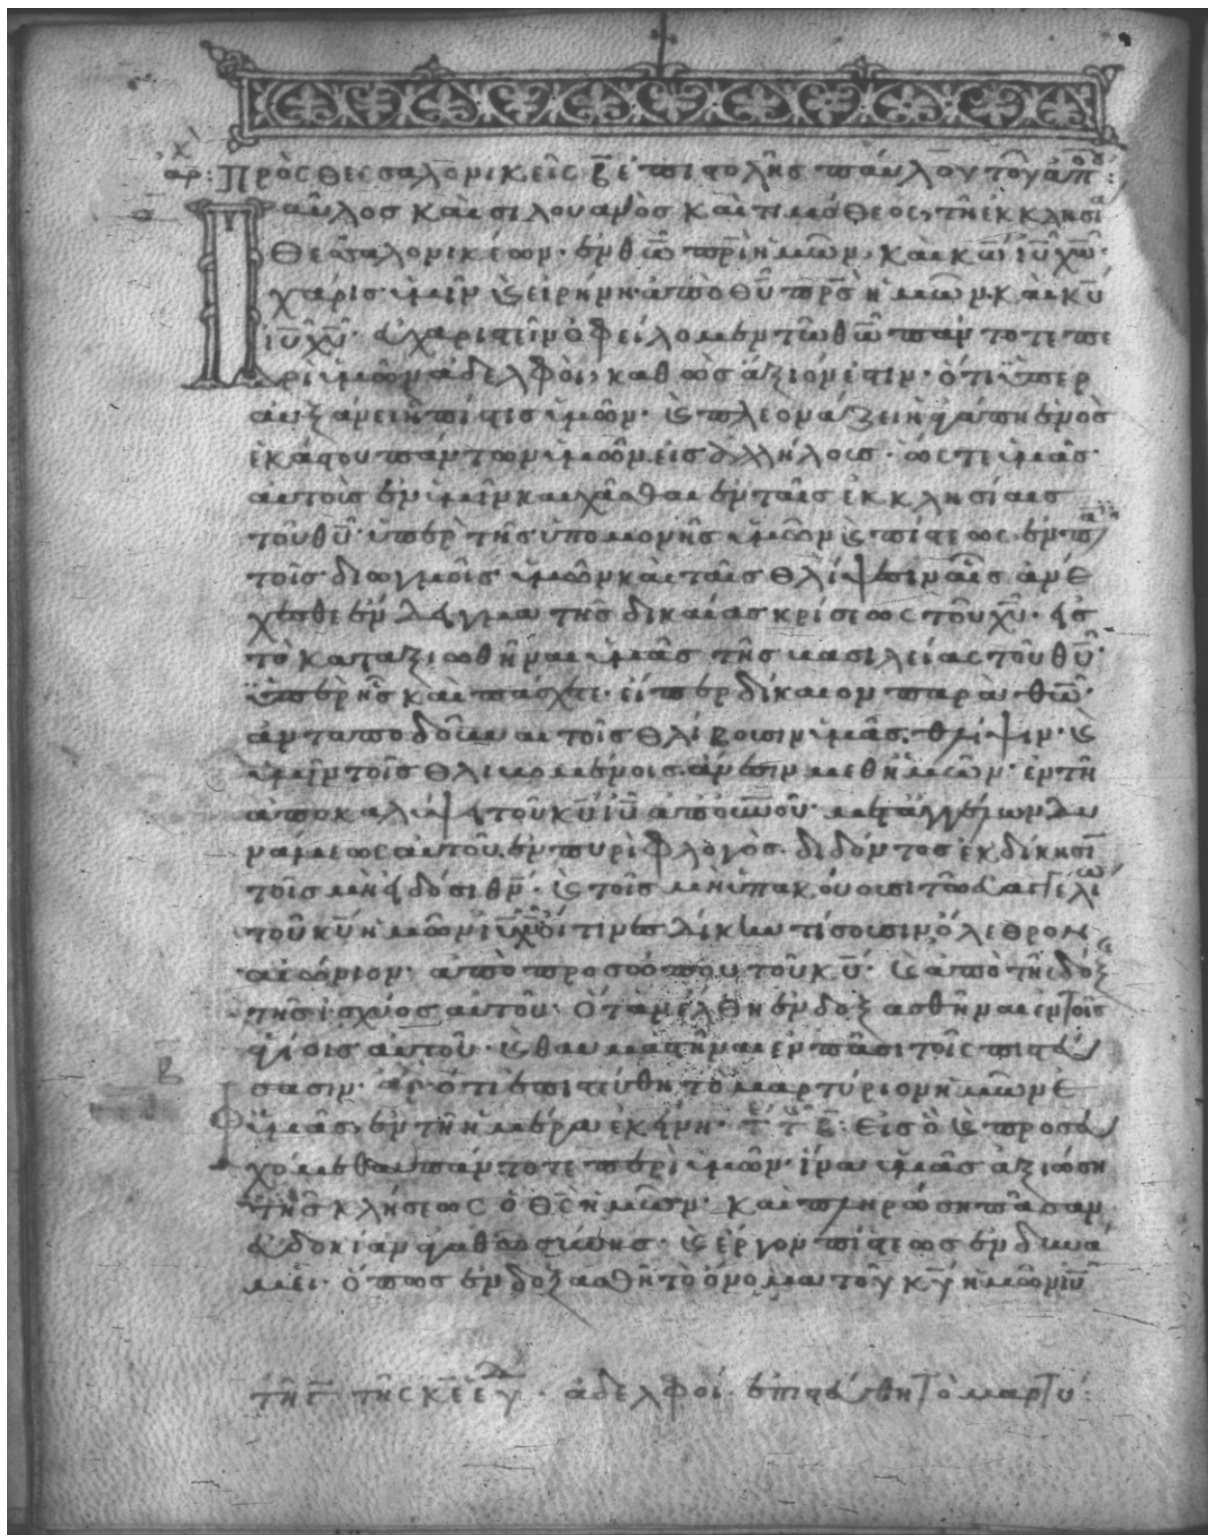 αρχ: Πρὸς Θεσσαλονικεῖς β̅ ἐπιστολῆς παύλου τοῦ ἀπο:
Παῦλος καὶ σιλουανὸς καὶ τιμόθεος, τῆ ἐκκλησία
Θεσσαλονικέων· ἐν θω̅ πρι̅ ἡμῶν· καὶ κω̅ ιυ̅ χω̅·
χάρις ὑμῖν καὶ εἰρήνη ἀπὸ θυ̅ πρς̅ ἡμῶν· καὶ κυ̅
ιυ̅ χυ̅· εὐχαριστεῖν ὀφείλομεν τῶ θω̅ πάντοτε πε
ρὶ ὑμῶν ἀδελφοὶ, καθὼς ἄξιόν ἐστιν· ὅτι ὑπερ
αυξάνει ἡ πίστις ὑμῶν· καὶ πλεονάζει ἡ ἀγάπη ἑνὸς
ἑκάστου πάντων ὑμῶν εἰς ἀλλήλους· ὥστε ἡμᾶς
αὐτοὺς ἐν ὑμῖν καυχᾶσθαι ἐν ταῖς ἐκκλησίαις
τοῦ θυ̅· ὑπὲρ τῆς ὑπομονῆς ὑμῶν καὶ πίστεως, ἐν πᾶσιν
τοῖς διωγμοῖς ὑμῶν καὶ ταῖς θλίψεσιν αἷς ἀνέ
χεσθε ἔνδειγμα τῆς δικαίας κρίσεως τοῦ χυ̅· εἰς
τὸ καταξιωθῆναι ὑμᾶς τῆς βασιλείας τοῦ θυ̅·
ὑπὲρ ἧς καὶ πάσχετε· εἴπερ δίκαιον παρὰ θω̅·
ἀνταποδοῦναι τοῖς θλίβουσιν ὑμᾶς, θλίψιν· καὶ
ὑμῖν τοῖς θλιβομένοις ἄνεσιν μεθ ἡμῶν· ἐν τῆ
ἀποκαλύψει τοῦ κυ̅ ιυ̅ ἀπ οὐνου̅· μετ ἀγγέλων δυ
νάμεως αὐτοῦ, ἐν πυρὶ φλογὸς· διδόντος ἐκδίκησι̅
τοῖς μὴ εἰδόσι θν̅· καὶ τοῖς μὴ ὑπακούουσι τῶ εὐαγγελίω
τοῦ κυ̅ ἡμῶν ιυ̅ χυ̅ οἵτινες δίκην τίσουσιν ὄλεθρον
αἰώνιον· ἀπὸ προσώπου τοῦ κυ̅· καὶ ἀπὸ τῆς δόξης
τῆς ἰσχύος αὐτοῦ· ὅταν ἔλθη ἐνδοξασθῆναι ἐν τοῖς
ἁγίοις αὐτοῦ· καὶ θαυμαστῆναι ἐν πᾶσι τοῖς πιστεύ
σασιν· ὅτι ἐπιστεύθη τὸ μαρτύριον ἡμῶν ἐ
φ ὑμᾶς, ἐν τῆ ἡμέρα ἐκείνη· Εἰς ὃ καὶ προσευ
χόμεθα πάντοτε περὶ ὑμῶν· ἵνα ὑμᾶς ἀξιώση
τῆς κλήσεως ὁ θς̅ ἡμῶν· καὶ πληρώση πᾶσαν
εὐδοκίαν ἀγαθωσύνης· καὶ ἔργον πίστεως ἐν δυνά
μει· ὅπως ἐνδοξασθῆ τὸ ὄνομα τοῦ κυ̅ ἡμῶν ιυ̅
ἀδελφοί ἐπιστεύθη τὸ μαρτυ: